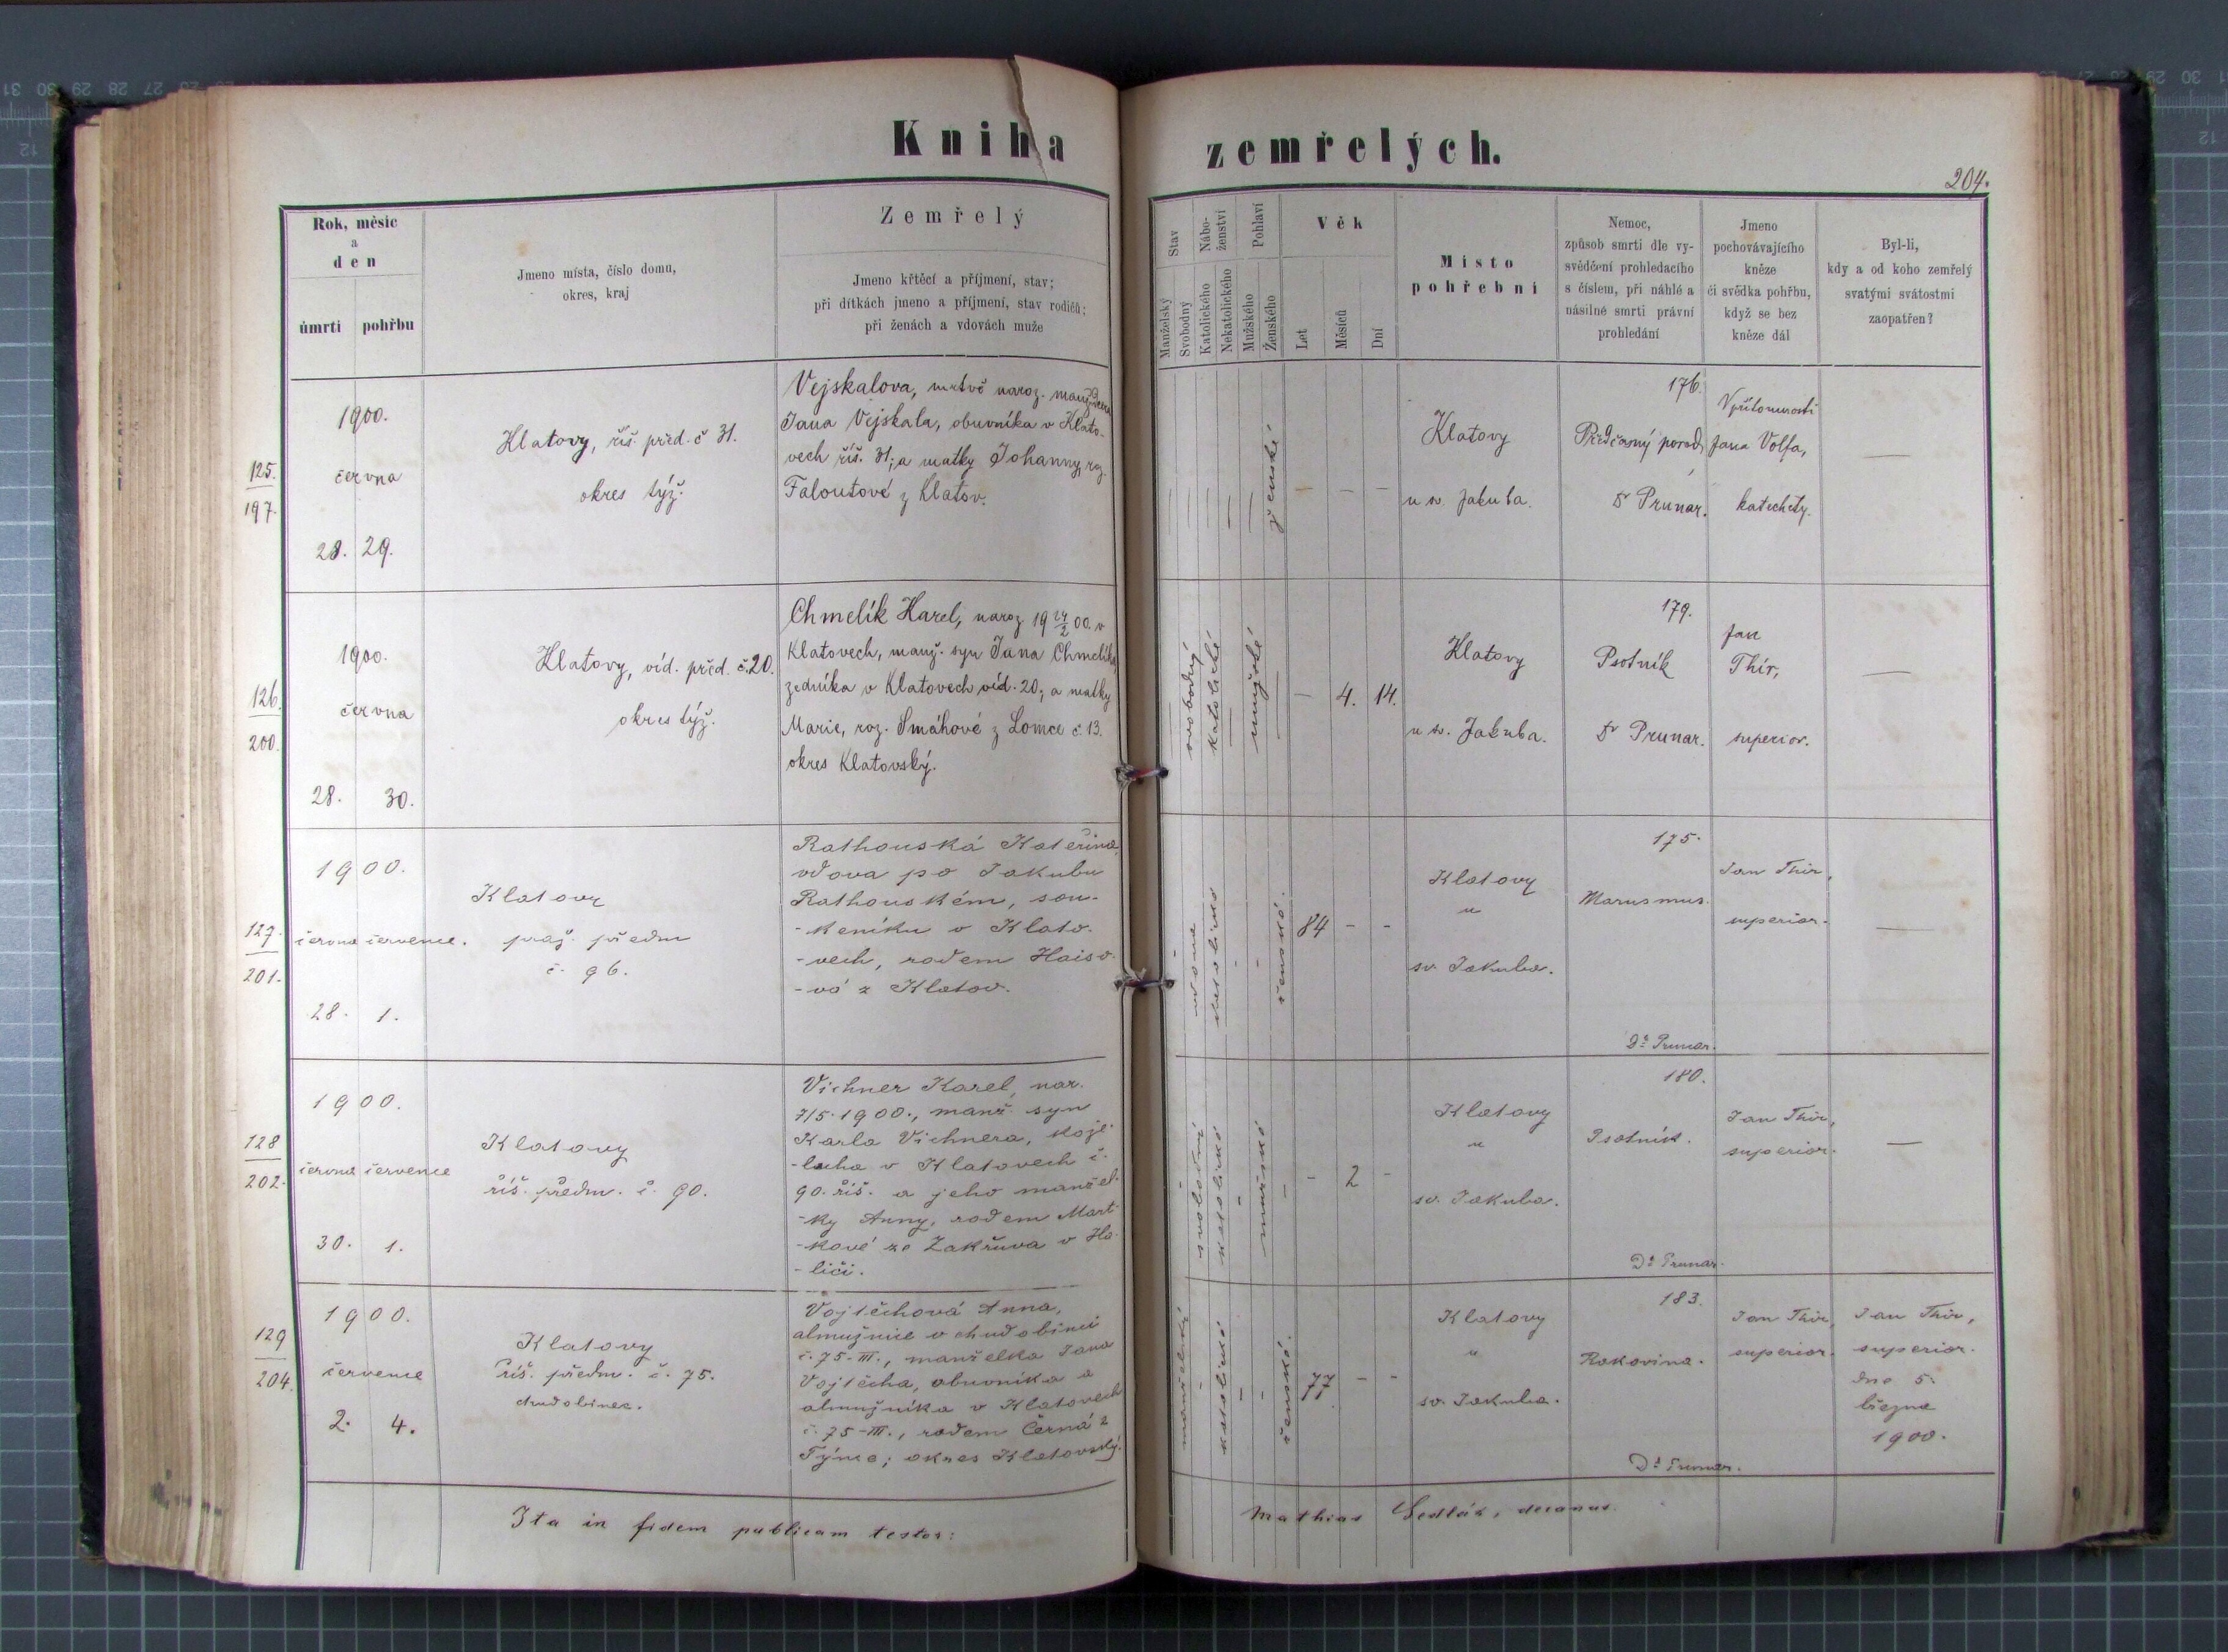 Kniha zemřelých.
204.
Rok, měsíc
a
den
úmrtí pohřbu
Jmeno místa, číslo domu,
okres, kraj
Zemřelý
Jmeno křtěcí a příjmení, stav;
při dítkách jmeno a příjmení, stav rodičů;
při ženách a vdovách muže
Stav
Manželský
Svobodný
Nábo-
ženství
Katolického
Nekatolického
Pohlaví
Mužského
Ženského
Věk
Let
Měsíců
Dní
Místo
pohřební
Nemoc,
způsob smrti dle vy-
svědčení prohledacího
s číslem, při náhlé a
násilné smrti právní
prohledání
Jmeno
pochovávajícího
kněze
či svědka pohřbu,
když se bez
kněze dál
Byl-li,
kdy a od koho zemřelý
svatými svátostmi
zaopatřen?
125.
197.
1900.
června
28. 29.
Klatovy, říš. před. č 31.
okres týž.
Vejskalova, mrtvě naroz. manž. dcera
Jana Vejskala, obuvníka v Klato-
vech říš. 31; a matky Johanny, roz.
Faloutové z Klatov.
— — — — — ženské — — —
Klatovy
u sv. Jakuba.
176.
Předčasný porod
Dr Prunar.
V přítomnosti
Jana Volfa,
katechety.
—
126.
200.
1900.
června
28. 30.
Klatovy, víd. před. č. 20.
okres týž.
Chmelík Karel, naroz 19 24/2 00. v
Klatovech, manž. syn Jana Chmelíka,
zedníka v Klatovech víd. 20; a matky
Marie, roz. Smáhové z Lomce č. 13.
okres Klatovský.
— svobodný katolické — mužské — — 4. 14.
Klatovy
u sv. Jakuba.
179.
Psotník
Dr Prunar.
Jan
Thír,
superior.
—
127.
201.
1900.
června července.
28. 1.
Klatovy
praž. předm
č. 96.
Rathouská Kateřina,
vdova po Jakubu
Rathouském, sou-
-keníku v Klato-
-vech, rodem Haiso-
-vá z Klatov.
- vdova katolické - - ženské. 84 - -
Klatovy
u
sv. Jakuba.
175.
Marasmus.
Dr Prunar.
Jan Thír,
superior.
—
128
202.
1900.
června července
30. 1.
Klatovy
říš. předm. č. 90.
Vichner Karel, nar.
7/5. 1900., manž. syn
Karla Vichnera, kože-
-lucha v Klatovech č.
90. říš. a jeho manžel-
-ky Anny, rodem Mart-
-kové ze Zakřuva v Ha-
-liči.
- svobodný katolické - mužské - - 2 -
Klatovy
u
sv. Jakuba.
180.
Psotník.
Dr Prunar.
Jan Thír,
superior.
—
129
204.
1900.
července
2. 4.
Klatovy
říš. předm. č. 75.
chudobinec.
Vojtěchová Anna,
almužnice v chudobinci
č. 75-III., manželka Jana
Vojtěcha, obuvníka a
almužníka v Klatovech
č. 75-III., rodem Černá z
Týnce; okres Klatovský.
manželský - katolické - - ženské. 77 - -
Klatovy
u
sv. Jakuba.
183.
Rakovina.
Dr Prunar.
Jan Thír,
superior.
Jan Thír,
superior.
dne 5.
března
1900.
Ita in fidem publicam testor: Mathias Sedlák, decanus.